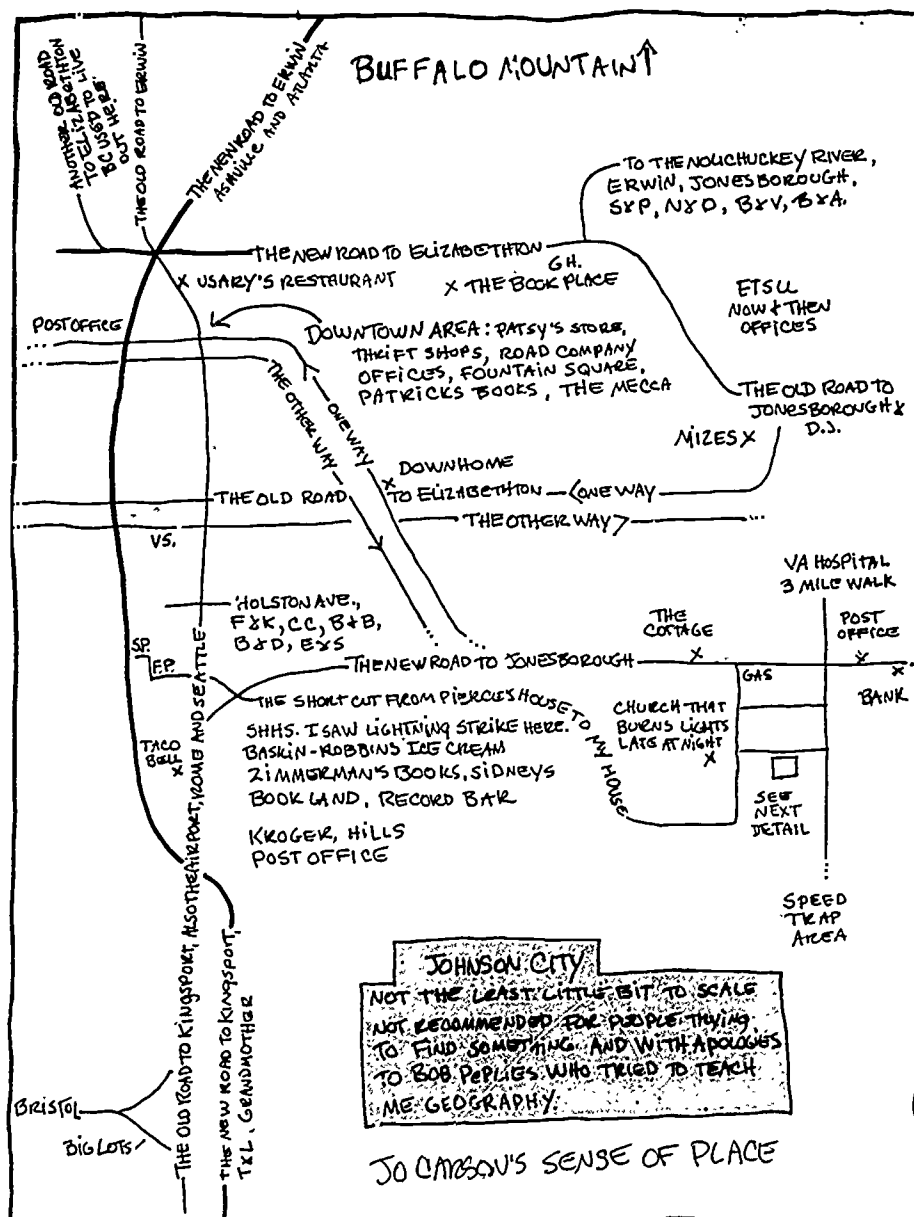 BUFFALO MOUNTAIN
ANOTHER OLD ROAD
TO ELIZABETHTON
BC USED TO LIVE
OUT HERE.
THE OLD ROAD TO ERWIN
THE NEW ROAD TO ERWIN
ASHVILLE AND ATLANTA
TO THE NOLICHUCKEY RIVER,
ERWIN, JONESBOROUGH,
S&P, N&D, B&V, B&A.
THE NEW ROAD TO ELIZABETHTON
X USARY'S RESTAURANT
G.H.
X THE BOOK PLACE
ETSU
NOW & THEN
OFFICES
POST OFFICE
DOWNTOWN AREA: PATSY'S STORE,
THRIFT SHOPS, ROAD COMPANY
OFFICES, FOUNTAIN SQUARE,
PATRICKS BOOKS, THE MECCA
THE OTHER WAY
ONE WAY
THE OLD ROAD TO
JONESBOROUGH &
D.J.
MIZES X
X DOWNHOME
THE OLD ROAD TO ELIZABETHTON <ONE WAY
THE OTHER WAY>
VS.
VA HOSPITAL
3 MILE WALK
HOLSTON AVE.,
F&K, CC, B&B,
B&D, E&S
THE
COTTAGE
X
POST
OFFICE
X
S.P.
F.P.
THE NEW ROAD TO JONESBOROUGH
GAS
X
BANK
THE SHORT CUT FROM PIERCIES HOUSE TO MY HOUSE
SHHS. I SAW LIGHTNING STRIKE HERE.
BASKIN-ROBBINS ICE CREAM
ZIMMERMAN'S BOOKS, SIDNEYS
BOOK LAND, RECORD BAR
KROGER, HILLS
POST OFFICE
CHURCH THAT
BURNS LIGHTS
LATE AT NIGHT
X
TACO
BELL
X
SEE
NEXT
DETAIL
SPEED
TRAP
AREA
THE OLD ROAD TO KINGSPORT, ALSO THE AIRPORT, ROME AND SEATTLE
THE NEW ROAD TO KINGSPORT,
T&L, GRANDMOTHER
BRISTOL
BIG LOTS
JOHNSON CITY
NOT THE LEAST LITTLE BIT TO SCALE
NOT RECOMMENDED FOR PEOPLE TRYING
TO FIND SOMETHING. AND WITH APOLOGIES
TO BOB PEPLIES WHO TRIED TO TEACH
ME GEOGRAPHY.
JO CARSON'S SENSE OF PLACE